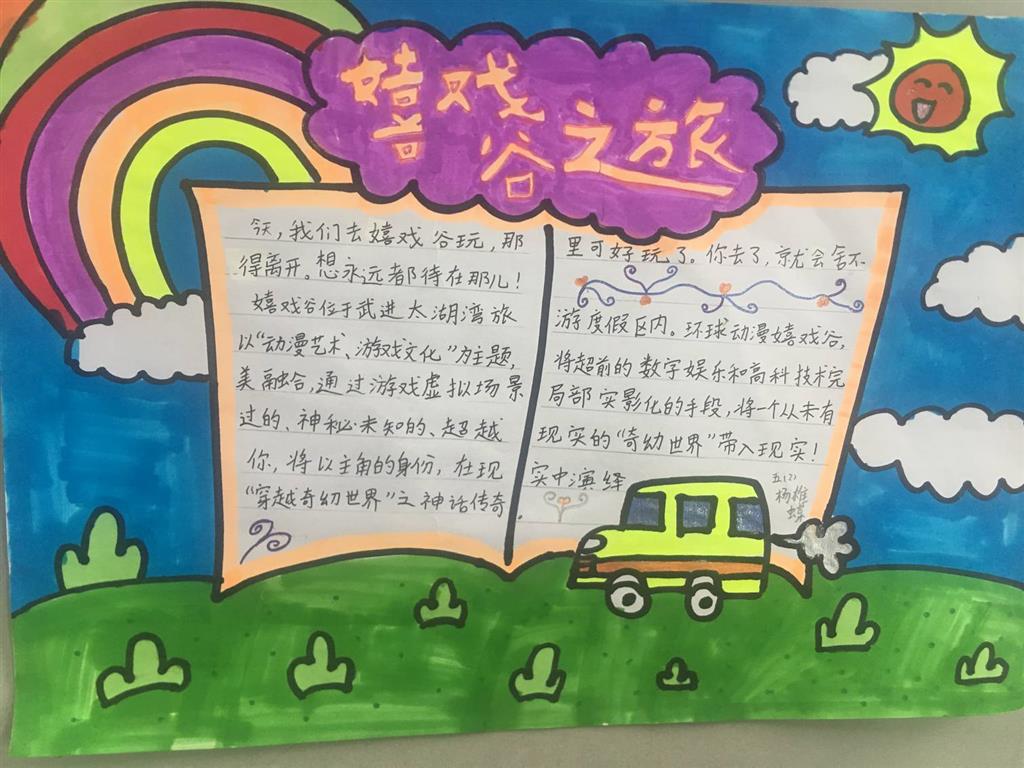 嬉戏谷之旅
今天,我们去嬉戏谷玩,那
里可好玩了。你去了,就会舍不
得离开。想永远都待在那儿!
嬉戏谷位于武进太湖湾旅
游度假区内。环球动漫嬉戏谷,
以“动漫艺术、游戏文化”为主题,
将超前的数字娱乐和高科技术完
美融合,通过游戏虚拟场景
局部实影化的手段,将一个从未有
过的、神秘未知的、超越
现实的“奇幻世界”带入现实!
你,将以主角的身份,在现
实中演绎
“穿越奇幻世界”之神话传奇.
五(2)
杨雅
蝶